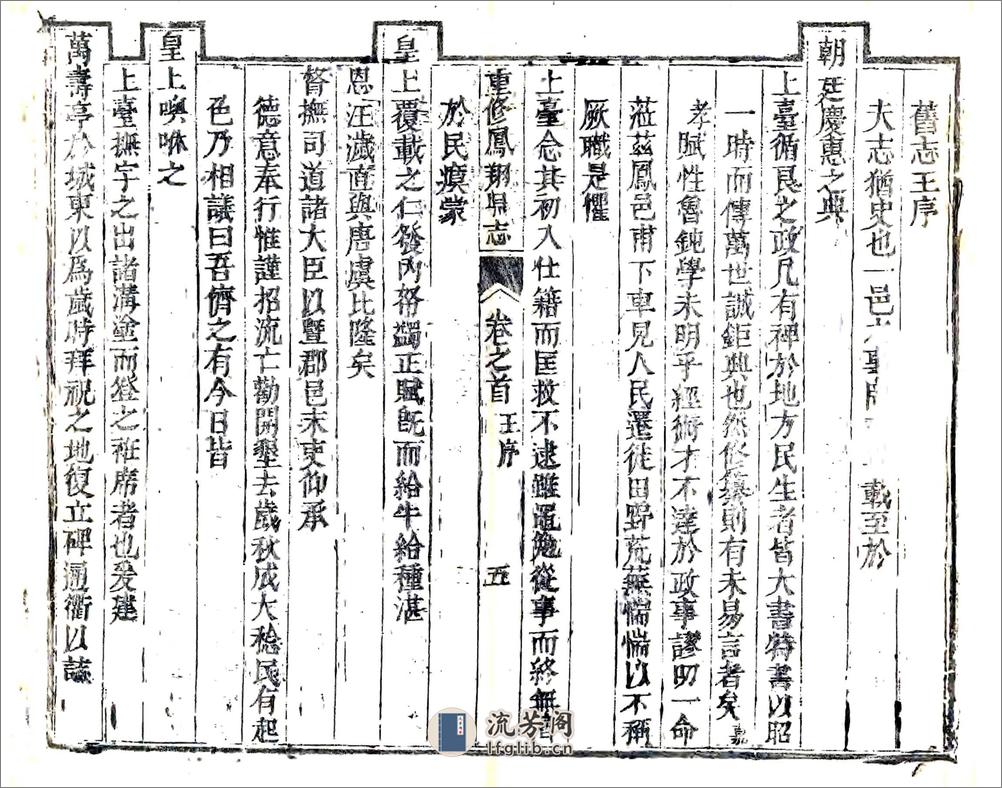 舊志王序
夫志猶史也一邑 載至於
朝廷慶惠之典
上臺循良之政凡有裨於地方民生者皆大書特書以昭
一時而傳萬世誠鉅典也然修纂則有未易言者矣嘉
孝賦性魯鈍學未明乎經術才不達於政事謬叨一命
蒞茲鳳邑甫下車見人民遷徙田野荒蕪惴惴以不稱
厥職是懼
上臺念其初入仕籍而匡救不逮雖黽勉從事而終無
重修鳳翔縣志 卷之首 王序 五
於民瘼蒙
皇上覆載之仁發內帑蠲正賦旣而給牛給種湛
恩汪濊直與唐虞比隆矣
督撫司道諸大臣以暨郡邑末吏仰承
德意奉行惟謹招流亡勸開墾去歲秋成大稔民有起
色乃相議曰吾儕之有今日皆
皇上噢咻之
上臺撫字之出諸溝塗而登之袵席者也爰建
萬壽亭於城東以爲歲時拜祝之地復立碑通衢以誌
流芳阁
lfglib.cn